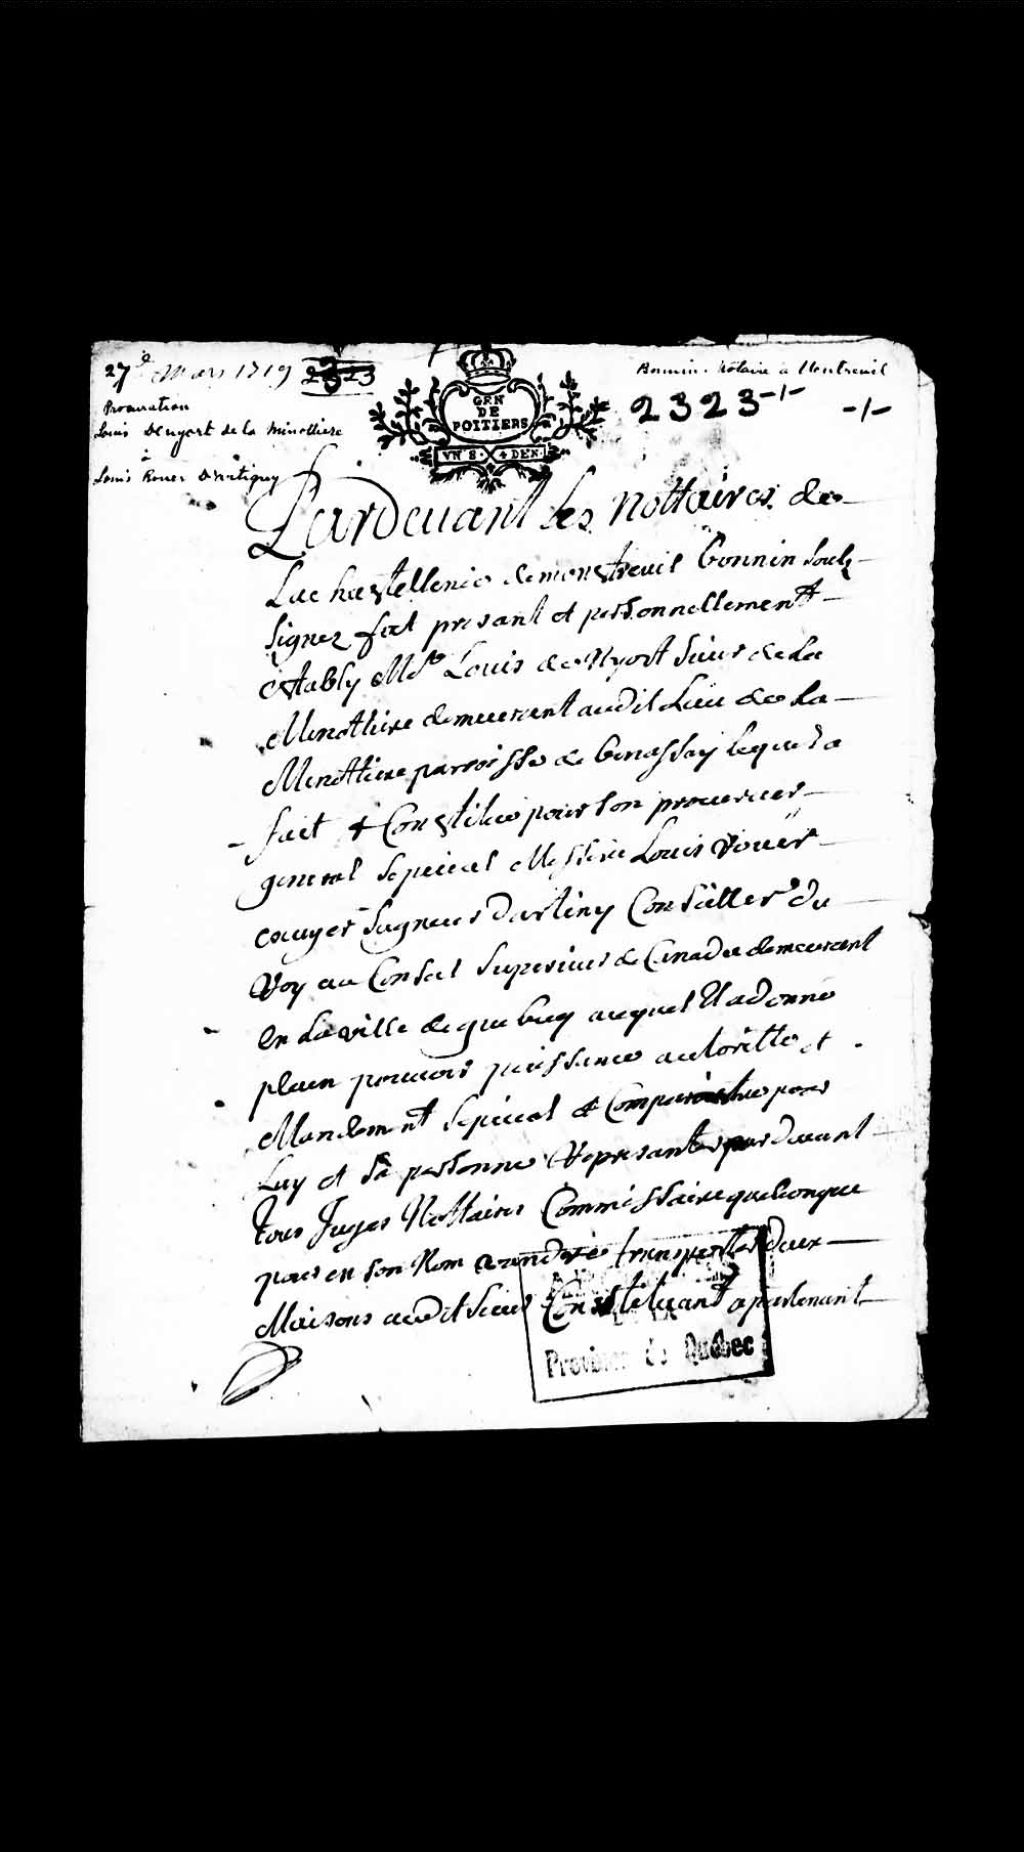 27e Mars 1719 2323
Procuration
Louis Denyort de la Minottiere
à
Louis Rouer D'Artigny
GEN
DE
POITIERS
VN S. 4 DEN.
Bonnin. Notaire à Montreuil
2323 -/-
-/-
Pardevant Les Nottaires de
La chastellenie de monstreuil Bonnin soulz
signez fut presant et personnellement
estably Mre Louis de Nyort sieur de La
Minottiere demeurant audit Lieu de La
Minottiere parroisse de Benassay lequel a
fait & Constitue pour son procureur
general sepecial Messire Louis Rouer
escuyer seigneur Dartiny Conseiller du
Roy au Conseil superieur de Canada demeurant
en La ville de quebecq auquel Il a donne
plain pouvoir puissance autoritte et
Mandement sepecial de Comparoistre pour
Luy et sa personne Representer par devant
tous Juges Nottaires Commissaire quelconque
pour en son Nom transporter deux
Maisons audit sieur Constituant apartenant
Province de Québec